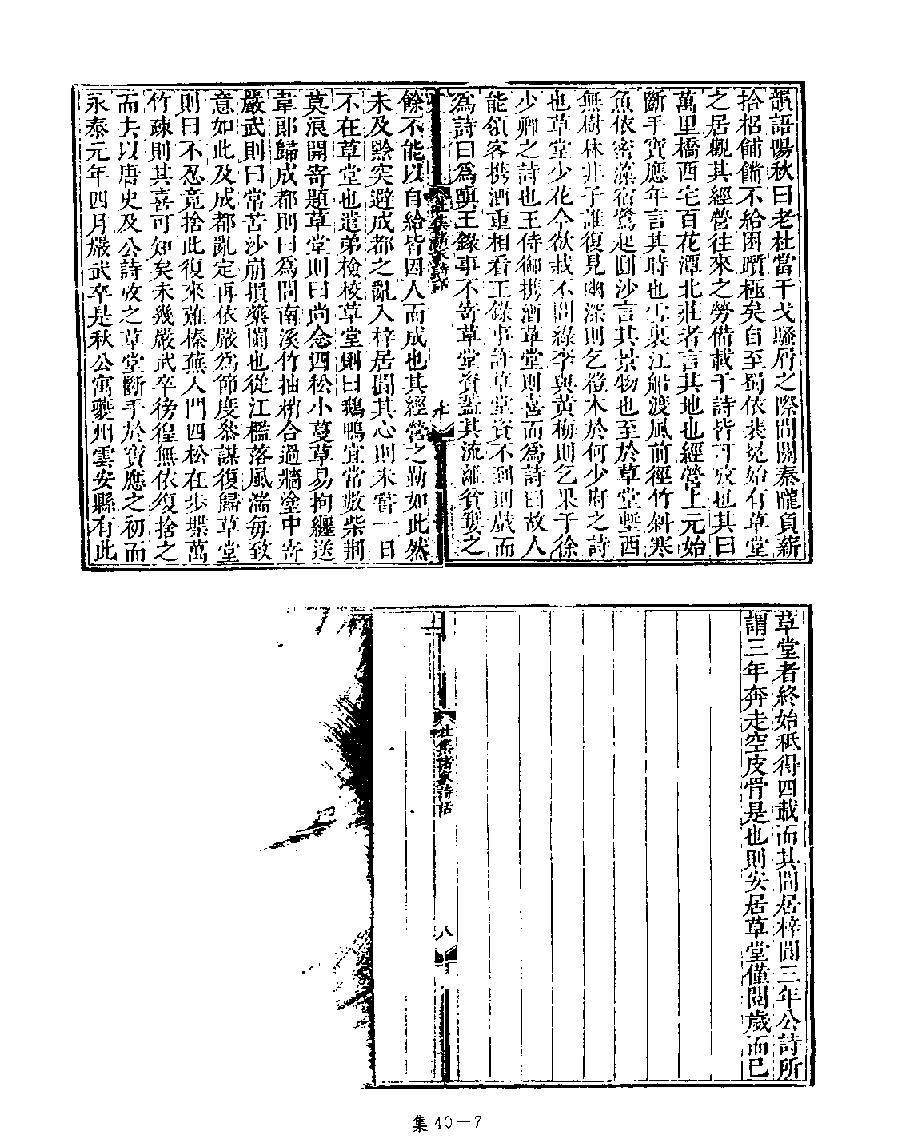 韻語陽秋曰老杜當干戈騷屑之際間關秦隴負薪
拾梠餔糒不給困躓極矣自至蜀依裴冕始有草堂
之居觀其經營往來之勞備載于詩皆可攷也其曰
萬里橋西宅百花潭北莊者言其地也經營上元始
斷手寶應年言其時也雪裏江船渡風前徑竹斜寒
魚依密藻宿鷺起圓沙言其景物也至於草堂塹西
無樹林非子誰復見幽深則乞榿木於何少府之詩
也草堂少花今欲栽不問綠李與黃梅則乞果于徐
少卿之詩也王侍御携酒草堂則喜而為詩曰故人
能領客携酒重相看王錄事許草堂資不到則戲而
為詩曰為嗔王錄事不寄草堂資蓋其流離貧窶之
餘不能以自給皆因人而成也其經營之勤如此然
未及黔突避成都之亂入梓居閬其心則未嘗一日
不在草堂也遣弟檢校草堂則曰鵝鴨宜常數柴荆
莫浪開寄題草堂則曰尚念四松小蔓草易拘纏送
韋郎歸成都則曰為問南溪竹抽梢合過牆塗中寄
嚴武則曰常苦沙崩損藥闌也從江檻落風湍每致
意如此及成都亂定再依嚴為節度參謀復歸草堂
則曰不忍竟捨此復來薙榛蕪入門四松在步屧萬
竹疎則其喜可知矣未幾嚴武卒徬徨無依復捨之
而去以唐史及公詩攷之草堂斷手於寶應之初而
永泰元年四月嚴武卒是秋公寓夔州雲安縣有此
杜集諸家詩話
七
草堂者終始秖得四載而其間居梓閬三年公詩所
謂三年奔走空皮骨是也則安居草堂僅閱歲而已
杜集諸家詩話
八
集 40—7